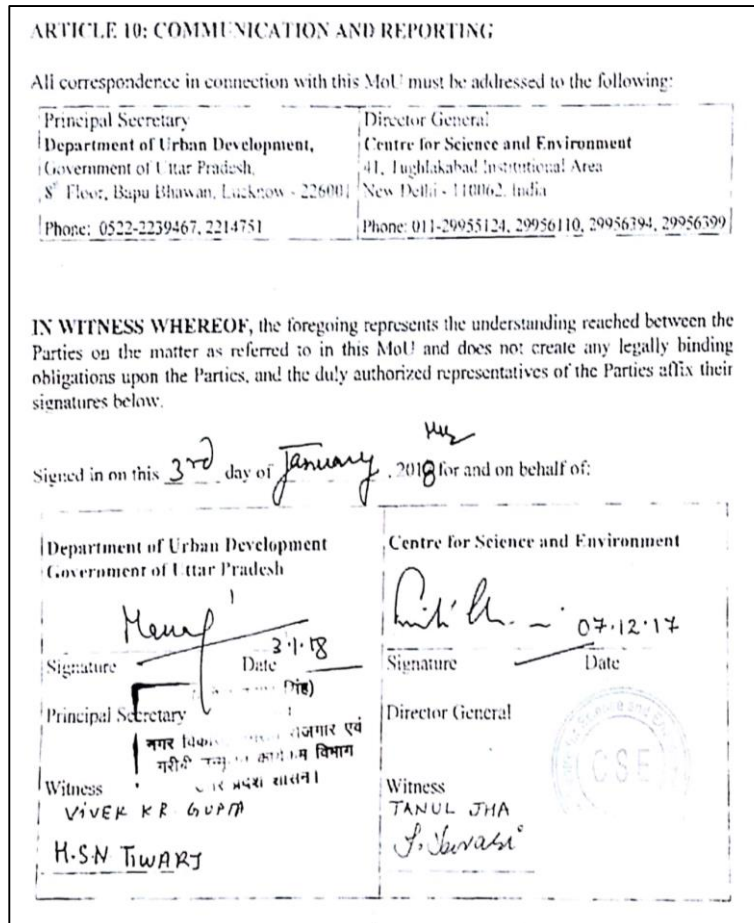 ARTICLE 10: COMMUNICATION AND REPORTING
All correspondence in connection with this MoU must be addressed to the following:
Principal Secretary
Department of Urban Development,
Government of Uttar Pradesh,
8th Floor, Bapu Bhawan, Lucknow - 226001
Phone: 0522-2239467, 2214751
Director General
Centre for Science and Environment
41, Tughlakabad Institutional Area
New Delhi - 110062, India
Phone: 011-29955124, 29956110, 29956394, 29956399
IN WITNESS WHEREOF, the foregoing represents the understanding reached between the
Parties on the matter as referred to in this MoU and does not create any legally binding
obligations upon the Parties, and the duly authorized representatives of the Parties affix their
signatures below.
Signed in on this 3rd day of January, 2018 for and on behalf of:
Department of Urban Development
Government of Uttar Pradesh
3.1.18
Signature Date
सिंह)
Principal Secretary
नगर रोजगार एवं
गरीबी विभाग
प्रदेश शासन।
Witness
VIVEK KR GUPTA
H.S.N TIWARI
Centre for Science and Environment
07.12.17
Signature Date
Director General
CSE
Witness
TANUL JHA